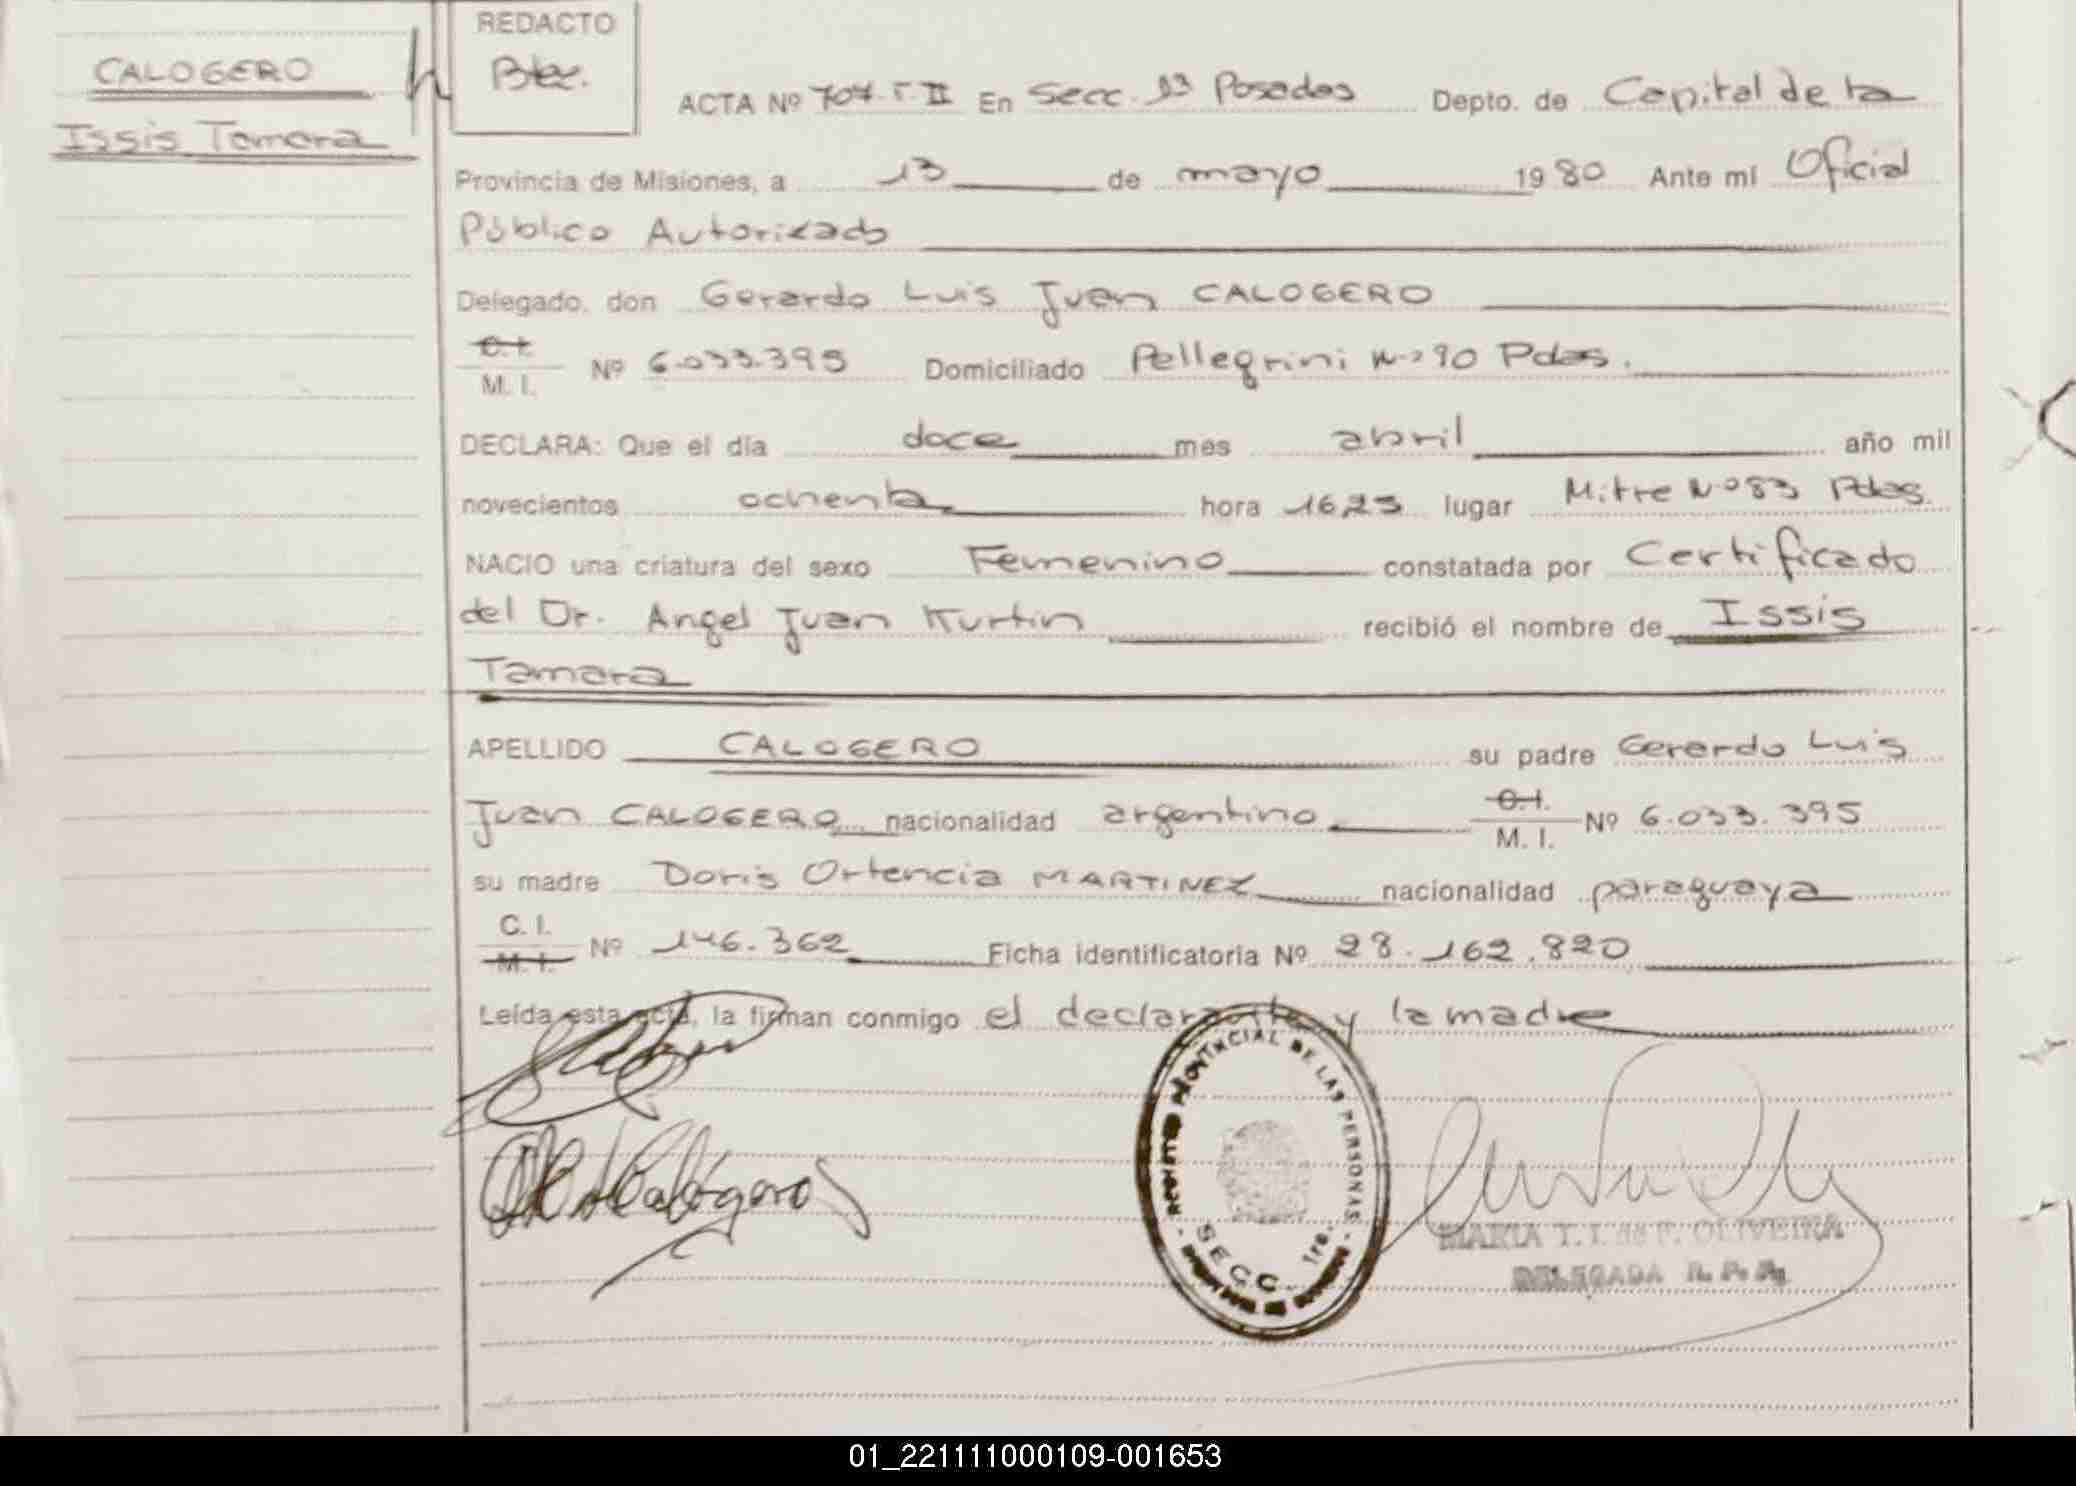 CALOGERO
Issis Tamara
REDACTO
ACTA Nº 707. T. II En Secc. 1ª Posadas Depto. de Capital de la
Provincia de Misiones, a 13 de mayo 1980 Ante mí Oficial
Público Autorizado
Delegado, don Gerardo Luis Juan CALOGERO
C.I.
M. I. Nº 6.033.395 Domiciliado Pellegrini Nº 90 Pdas.
DECLARA: Que el día doce mes abril año mil
novecientos ochenta hora 16,25 lugar Mitre Nº 83 Pdas.
NACIO una criatura del sexo Femenino constatada por Certificado
del Dr. Angel Juan Kurtin recibió el nombre de Issis
Tamara
APELLIDO CALOGERO su padre Gerardo Luis
Juan CALOGERO nacionalidad argentino C.I. M. I. Nº 6.033.395
su madre Doris Ortencia MARTINEZ nacionalidad paraguaya
C. I.
M. I. Nº 146.362 Ficha identificatoria Nº 28.162.820
Leída esta acta, la firman conmigo el declarante y la madre
REGISTRO PROVINCIAL DE LAS PERSONAS
SECC. 1ra.
MARIA T. I. de F. OLIVEIRA
DELEGADA R. P. P.
01_221111000109-001653